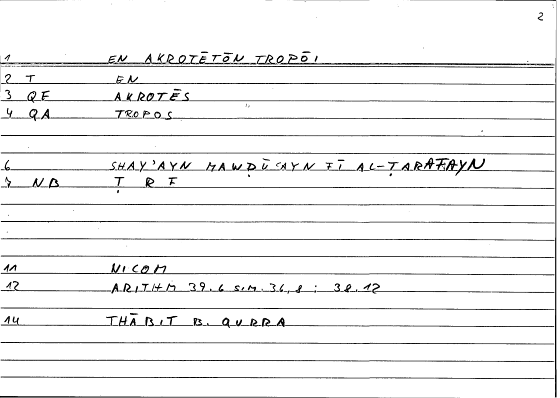 2
1 EN AKROTĒTŌN TROPŌI
2 T EN
3 QE AKROTĒS
4 QA TROPOS
6 SHAY'AYN MAWḌŪ'AYN FĪ AL-ṬARAFAYN
7 NB Ṭ R F
11 NICOM
12 ARITHM 39.6 SIM. 36,8 : 38.12
14 THĀBIT B. QURRA